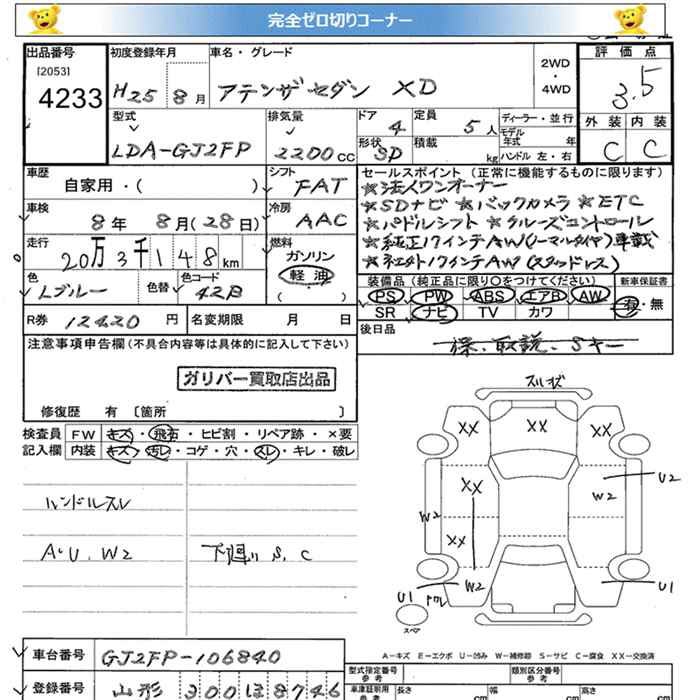 完全ゼロ切りコーナー
出品番号
[2053]
4233
初度登録年月
H25 8月
車名・グレード
アテンザセダン XD
2WD
・
4WD
評価点
3.5
外装 内装
C C
型式
LDA-GJ2FP
排気量
2200cc
ドア
4
定員
5人
ディーラー・並行
モデル
年式 年
形状
SD
積載
kg
ハンドル 左・右
車歴
自家用・( )
シフト
FAT
車検
8年 8月(28日)
冷房
AAC
走行
20万3千148km
燃料
ガソリン
軽油
( )
色
Lブルー
色替
色コード
42B
R券 12420円
名変期限 月 日
セールスポイント(正常に機能するものに限ります)
★法人ワンオーナー
★SDナビ ★バックカメラ ★ETC
★パドルシフト ★クルーズコントロール
★純正17インチAW(ノーマルタイヤ)車載
★社外17インチAW(スタッドレス)
装備品(純正品に限り○をつけてください)
新車保証書
PS PW ABS エアB AW
SR ナビ TV カワ
有・無
後日品
保、取説、Sキー
注意事項申告欄(不具合内容等は具体的に記入して下さい)
ガリバー買取店出品
修復歴 有 〔箇所 〕
検査員
記入欄
FW キズ・飛石・ヒビ割・リペア跡・×要
内装 キズ・汚レ・コゲ・穴・スレ・キレ・破レ
ハンドルスレ
A・U、W2
下廻りS、C
XX
XX
XX
XX
W2
U2
W2
XX
W2
U1
U1
スペア
A-キズ E-エクボ U-凹み W-補修跡 S-サビ C-腐食 XX-交換済
車台番号
GJ2FP-106840
登録番号
山形 300 ほ 8746
型式指定番号
参考
類別区分番号
参考
車庫証明用
参考
長さ
cm
幅
cm
高さ
cm